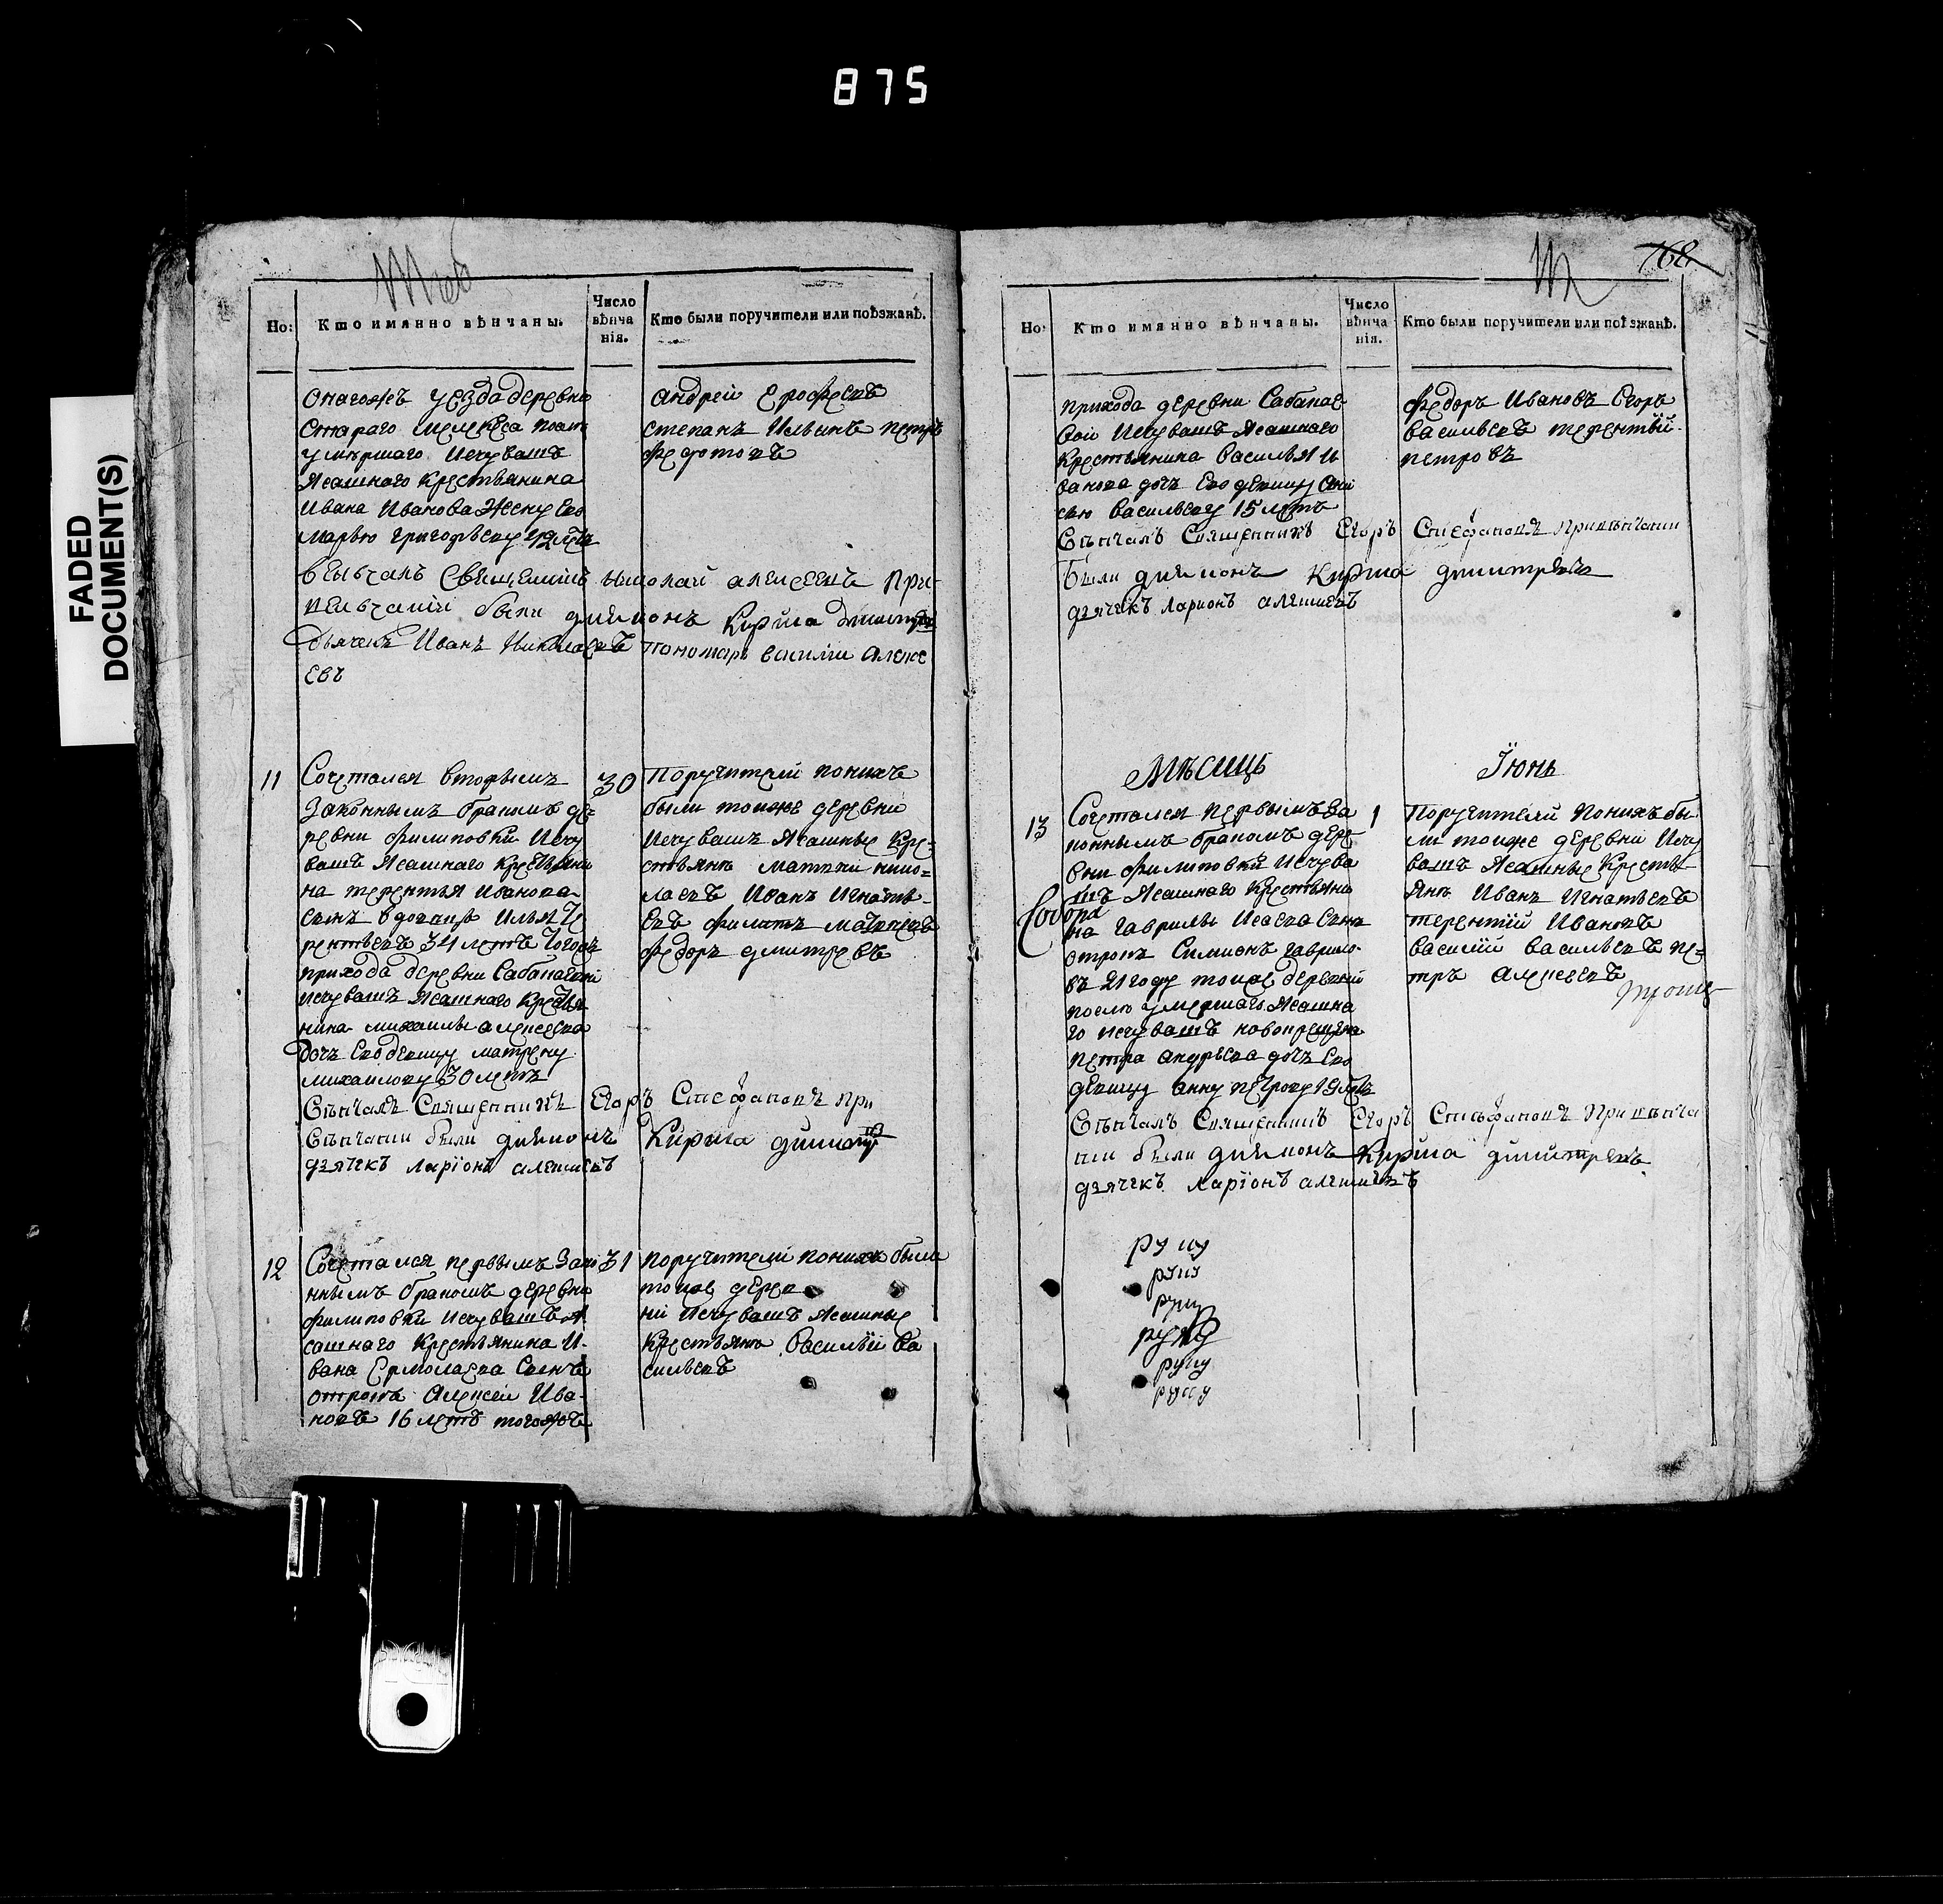 875
FADED
DOCUMENT(S)
168
Но:
Кто имянно вѣнчаны.
Число
вѣнча
нія.
Кто были поручители или поѣзжанѣ.
онагожъ уезда деревни
Стараго мелекеса после
умершаго Исчувашъ
Ясашнаго Крестьянина
Ивана Иванова Жену Ево
марью григорьеву
Андреи Ерофеевъ
степанъ Ильинъ петръ
федотовъ
венчалъ Священникъ николаи алексеевъ При
венчаніи были диаконъ Кирила
дьячекъ Иванъ Николаевъ пономарь василии Алексе
евъ
11
Сочетался вторымъ
Законнымъ бракомъ де-
ревни филиповки Исчу
вашъ Ясашнаго Крестьяни
на терентья Иванова
сынъ вдовецъ Илья Те
рентьевъ 34 летъ тогожъ
прихода деревни Сабанаевои
исчувашъ Ясашнаго Крестья
нина михаилы алексеева
дочь Ево девицу матрену
михаилову 30 летъ
30
Поручители поникъ
были тоиже деревни
Исчувашъ Ясашные Кре-
стьянѣ матвеи нико=
лаевъ Иванъ Игнать-
евъ филатъ матвеевъ
федоръ дмитревъ
Вѣнчалъ Священникъ Егоръ Стефановъ при
вѣнчании были диаконъ Кирила
дзячекъ Ларіонъ алексиевъ
12
Сочетался первымъ Зако
ннымъ бракомъ деревни
филиповки Исчувашъ Я
сашнаго Крестьянина И-
вана Ермолаева Сынъ
отрокъ Алексеи Ива-
новъ 16 летъ тогожъ
31
поручители поникъ были
тоиже дерев
ни Исчувашъ Ясашные
Крестьянѣ Василѣй Ва
сильевъ
Но:
Кто имянно вѣнчаны.
Число
вѣнча
нія.
Кто были поручители или поѣзжанѣ.
прихода деревни Сабанае-
вои Исчувашъ Ясашнаго
Крестьянина василья И
ванова дочь Ево девицу
васильеву 15 летъ
федоръ Ивановъ Егоръ
васильевъ терентѣй
петровъ
Вѣнчалъ Священникъ Егоръ Стефановъ При вѣнчании
были диаконъ Кирила димитревъ
дзячекъ Ларионъ алексиевъ
Мѣсяцъ Їюнь
13
Сочетался первымъ За
коннымъ бракомъ дере-
вни филиповки Исчува
шъ Ясашнаго Крестьяни
на гаврилы Исаева Сынъ
отрокъ Симионъ гаврило-
въ 21 году тоиже деревни
после умершаго Ясашна
го исчувашъ новокрещена
петра андреева дочь Ево
девицу анну петрову 19 летъ
1
Поручители Поникъ бы
ли тоиже деревни Исчу
вашъ Ясашные Кресть-
янѣ Иванъ Игнатьевъ
терентїй Ивановъ
василїй васильевъ пе-
тръ алексеевъ
Вѣнчалъ Священникъ Егоръ Стефановъ При вѣнча
нии были диаконъ Кирила димитревъ
дзячекъ Ларїонъ алексиевъ
руку
руку
руку
руку
руку
руку